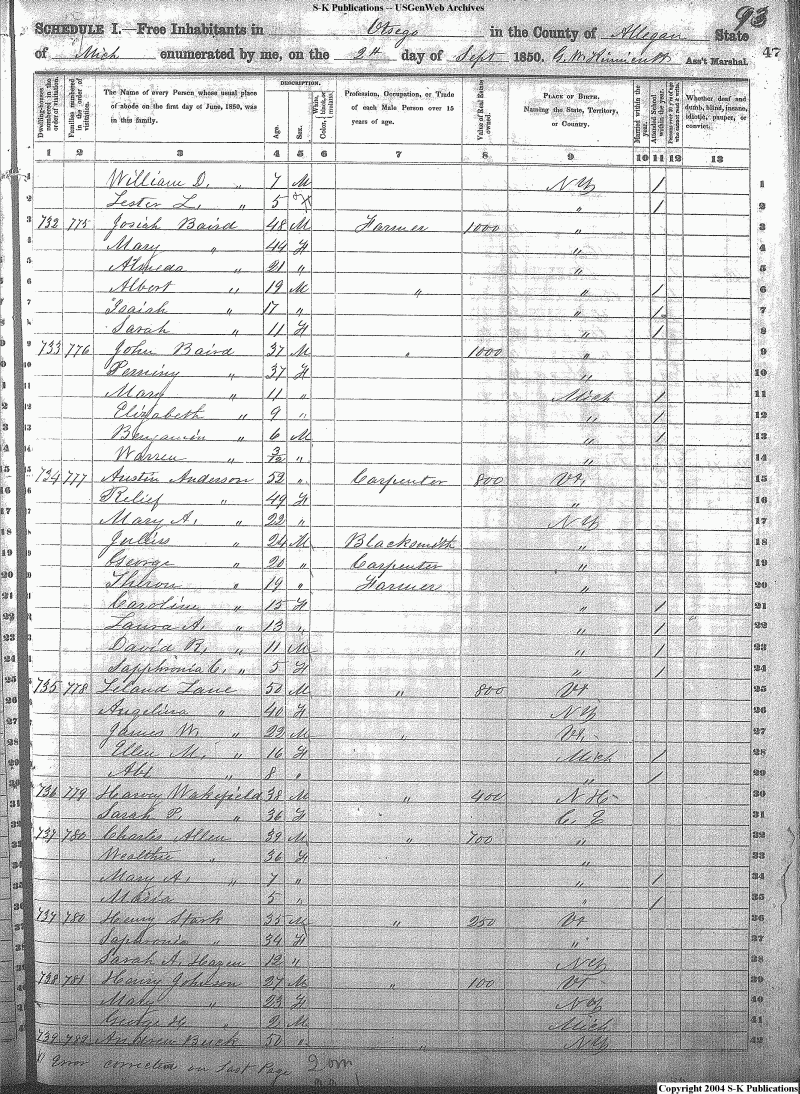 S-K Publications -- USGenWeb Archives
93
SCHEDULE I.—Free Inhabitants in Otsego in the County of Allegan State
47
of Mich enumerated by me, on the 2th day of Sept 1850. G. W. Ass't Marshal.
Dwelling-houses numbered in the order of visitation. Families numbered in the order of visitation. The Name of every Person whose usual place of abode on the first day of June, 1850, was in this family. DESCRIPTION. Age. Sex. Color, White, black, or mulatto. Profession, Occupation, or Trade of each Male Person over 15 years of age. Value of Real Estate owned. PLACE OF BIRTH. Naming the State, Territory, or Country. Married within the year. Attended School within the year. Persons over 20 y'rs of age who cannot read & write. Whether deaf and dumb, blind, insane, idiotic, pauper, or convict.
1 2 3 4 5 6 7 8 9 10 11 12 13
1 William D. " 7 M NY / 1
2 Lester L. " 5 " / 2
3 732 775 Josiah Baird 48 M Farmer 1000 " 3
Mary " 44 F " 4
Almeda " 21 " " 5
Albert " 19 M " " / 6
Isaiah " 17 " " / 7
Sarah " 11 F " / 8
733 776 John Baird 37 M " 1000 " 9
" 37 F " 10
Mary " 11 " Mich / 11
Elizabeth " 9 " " / 12
Benjamin " 6 M " / 13
Warren " 3/12 " " 14
734 777 Austin Anderson 52 " Carpenter 800 Vt. 15
Relief " 49 F " 16
Mary A. " 22 " NY 17
Julius " 24 M Blacksmith " 18
George " 20 " Carpenter " 19
" 19 " Farmer " 20
Caroline " 15 F " / 21
Laura A. " 13 " " / 22
David R. " 11 M " / 23
Sapphronia C. " 5 F " / 24
735 778 Leland Lane 50 M " 800 Vt 25
Angelina " 40 F NY 26
James W. " 22 M " Vt. 27
Ellen M. " 16 F Mich / 28
" 8 " " / 29
736 779 Harvey Wakefield 38 M " 400 N H 30
Sarah P. " 36 F C. E 31
737 780 Charles Allen 39 M " 700 " 32
Wealthie " 36 F " 33
Mary A. " 7 " " / 34
Maria " 5 " " / 35
737 780 Henry Stark 35 M " 250 Vt 36
Saphronia " 34 F " 37
Sarah A. Hagen 12 " NY 38
738 781 Henry Johnson 27 M " 100 Vt 39
Mary " 23 F NY 40
George H. " 2 M Mich 41
739 782 Andrew Buck 50 " " NY 42
Error corrected on Last Page
Copyright 2004 S-K Publications